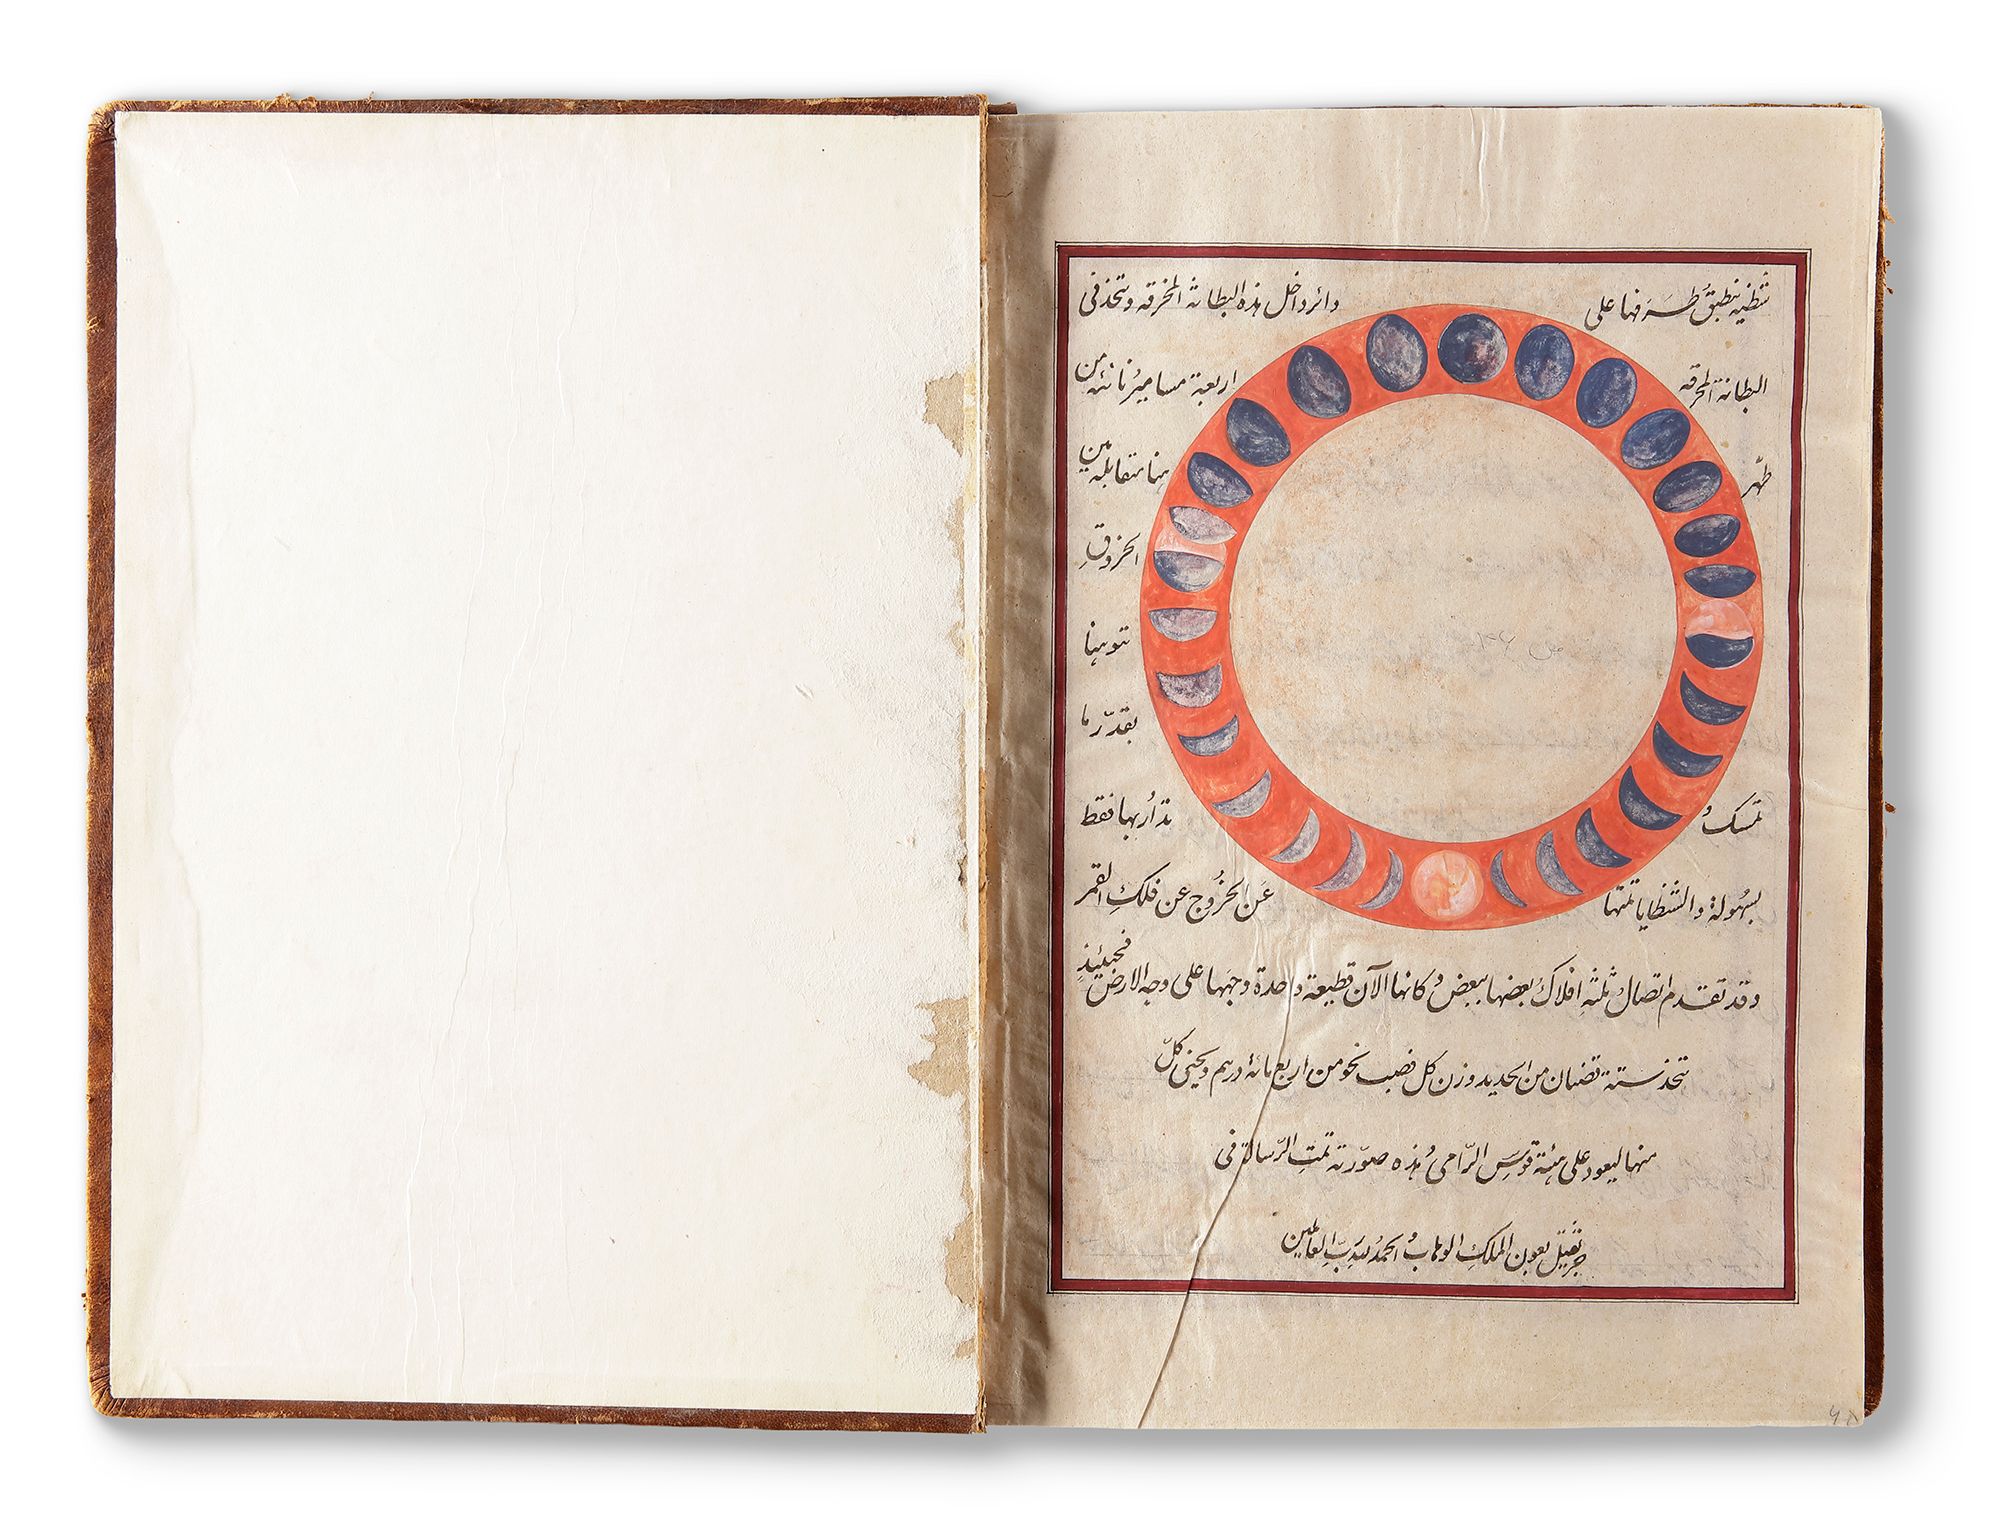 شظية ينطبق طرفها على دائر داخل هذه البطانة المخرقه ويتخذ فى
البطانة المخرقه اربعة مسامير ناتئه من
ظهر متقابله من
الخروق
بقدر ما
تمسك و تدار بها فقط
بسهولة والشظايا تمنها عن الخروج عن فلك القمر
وقد تقدم اتصال ثلثه افلاك بعضها ببعض و كانها الآن قطيعة واحدة وجهها على وجه الارض فحينئذ
يتخذ ستة قضبان من الحديد وزن كل قضيب نحو من اربع مائة درهم ويحنى كل
منها ليعود على هيئة قوس الرامى وهذه صورته تمت الرسالة فى
جر ثقيل بعون الملك الوهاب و الحمد لله رب العالمين